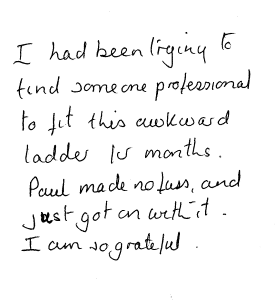 I had been trying to
find someone professional
to fit this awkward
ladder for months.
Paul made no fuss, and
just got on with it.
I am so grateful.